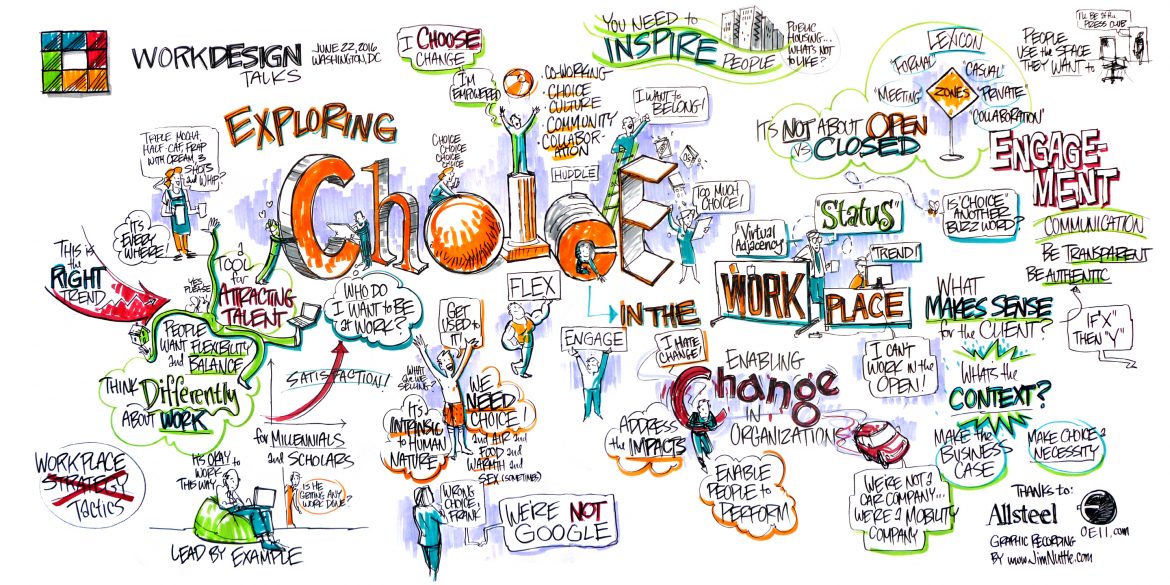 WORKDESIGN
TALKS
JUNE 22, 2016
WASHINGTON, DC
I CHOOSE
CHANGE
I'M
EMPOWERED
• CO-WORKING
• CHOICE
• CULTURE
• COMMUNITY
• COLLABOR-
ATION
YOU NEED to
INSPIRE
PEOPLE
PUBLIC
HOUSING...
WHAT'S NOT
to LIKE?
LEXICON
"FORMAL"
"CASUAL"
"MEETING"
ZONES
"PRIVATE"
"COLLABORATION"
I'LL BE at the
PRESS CLUB
PEOPLE
USE the SPACE
THEY WANT to
EXPLORING
Choice
IN THE
WORK
PLACE
TRIPLE MOCHA,
HALF-CAF, FRAP
WITH CREAM, 3
SHOTS
and WHIP?
CHOICE
CHOICE
CHOICE
CHOICE
HUDDLE
I WANT to
BELONG!
TOO MUCH
CHOICE!
IT'S NOT ABOUT OPEN
VS CLOSED
ENGAGE-
MENT
COMMUNICATION
BE TRANSPARENT
BE AUTHENTIC
IF "X"
THEN "Y"
IT'S
EVERY
WHERE!
THIS IS
the RIGHT
TREND
YES,
PLEASE
a
TOOL
for
ATTRACTING
TALENT
WHO DO
I WANT to BE
at WORK?
FLEX
ENGAGE
"Status"
"Virtual
Adjacency"
"TREND!"
IS "CHOICE"
ANOTHER
BUZZ WORD?
WHAT
MAKES SENSE
for the CLIENT?
PEOPLE
WANT FLEXIBILITY
and BALANCE
THINK
Differently
ABOUT WORK
SATISFACTION!
for MILLENNIALS
and SCHOLARS
GET
USED to
IT!
WHAT
ARE WE
SELLING?
IT'S
INTRINSIC
to HUMAN
NATURE
WE
NEED
CHOICE!
and AIR and
FOOD and
WARMTH and
SEX (SOMETIMES)
I HATE
CHANGE!
ENABLING
Change
IN
ORGANIZATIONS
ADDRESS
the IMPACTS
ENABLE
PEOPLE to
PERFORM
I CAN'T
WORK IN the
OPEN!
WHAT'S the
CONTEXT?
MAKE the
BUSINESS
CASE
MAKE CHOICE a
NECESSITY
WE'RE NOT a
CAR COMPANY...
WE'RE a MOBILITY
COMPANY
WORKPLACE
STRATEGY
TACTICS
IT'S OKAY
to WORK
THIS WAY
IS HE
GETTING ANY
WORK DONE?
LEAD BY EXAMPLE
WRONG
CHOICE,
FRANK
WE'RE NOT
GOOGLE
THANKS to:
Allsteel
OE11.com
GRAPHIC RECORDING
BY www.JimNuttle.com